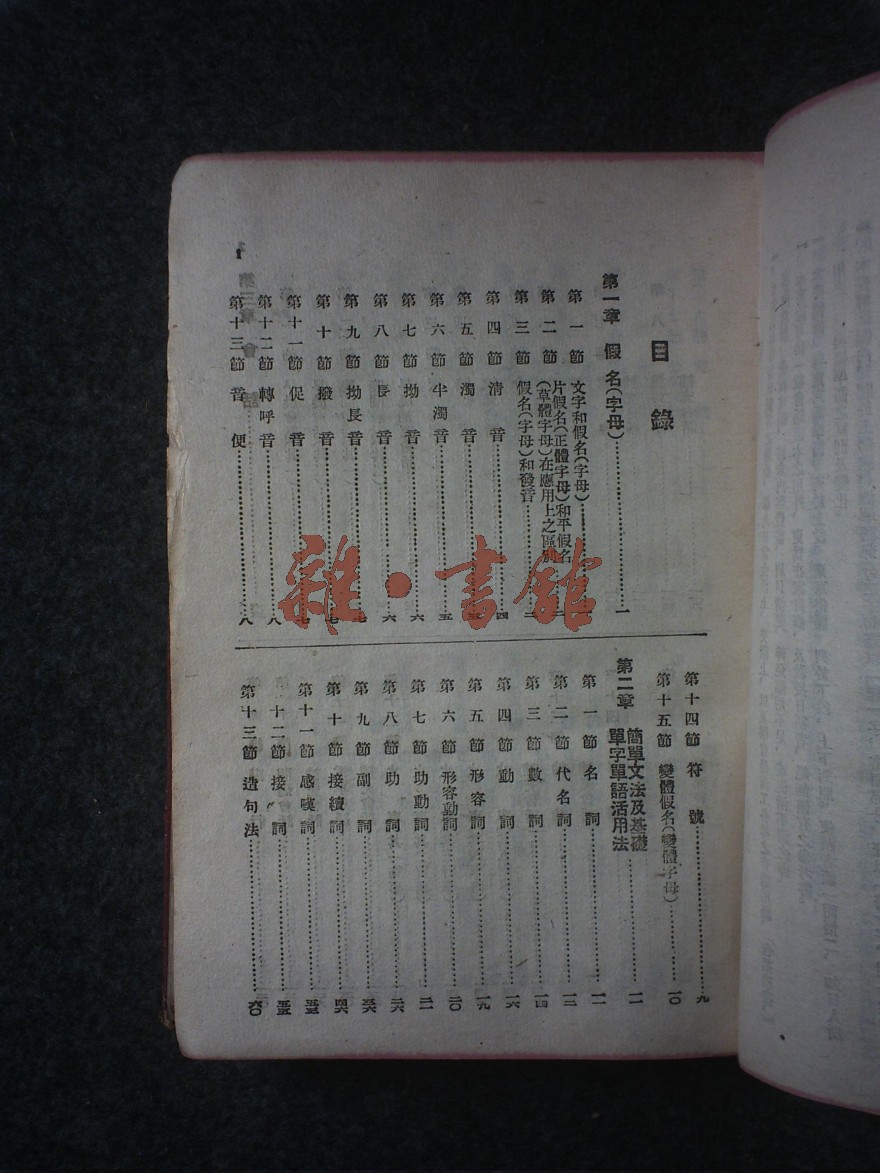 目錄
第一章 假名(字母)………一
第一節 文字和假名(字母)………
第二節 片假名(正體字母)和平假名
(草體字母)在應用上之區別
第三節 假名(字母)和發音………二
第四節 清音………四
第五節 濁音………五
第六節 半濁音………五
第七節 拗音………六
第八節 長音………六
第九節 拗長音………七
第十節 撥音………七
第十一節 促音………七
第十二節 轉呼音………八
第十三節 音便………八
1
第十四節 符號………九
第十五節 變體假名(變體字母)………一〇
第二章 簡單文法及基礎
單字單語活用法………一一
第一節 名詞………一一
第二節 代名詞………一二
第三節 數詞………一四
第四節 動詞………一六
第五節 形容詞………一九
第六節 形容動詞………二〇
第七節 助動詞………二一
第八節 助詞………二六
第九節 副詞………
第十節 接續詞………
第十一節 感嘆詞………
第十二節 接詞………
第十三節 造句法………六〇
雜·書館